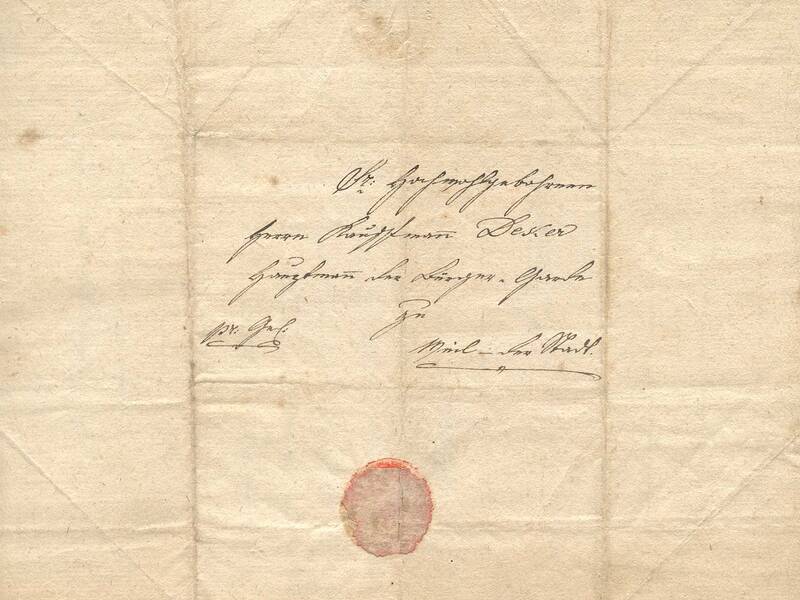 Sr: Hochwohlgebohrnen
Herrn Kauffmann Desker
Hauptmann der Bürger-Garde
zu
pr: Gel:
Weil-der Stadt.